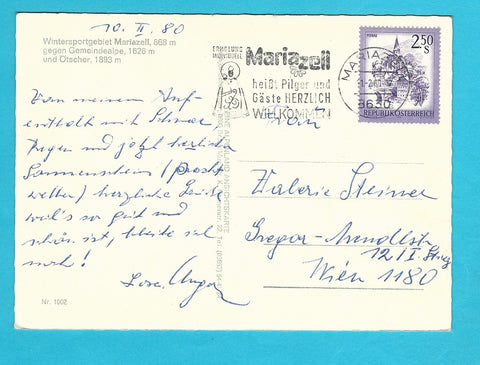 10. II. 80
Wintersportgebiet Mariazell, 868 m
gegen Gemeindealpe, 1626 m
und Ötscher, 1893 m
Von meinem Auf-
enthalt mit Schnee
Regen und jetzt herrlichem
Sonnenschein (Pracht
wetter) herzliche Grüße
weil's so gut und
schön ist, bleibe ich
noch!
Nr. 1002
ERHOLUNG
Mariazell
heißt Pilger und
Gäste HERZLICH
WILLKOMMEN
MARIAZELL
8630
2.50
S
REPUBLIK ÖSTERREICH
Frau
Valerie Steiner
Gregor-Mendelstr.
12/I
Wien 1180